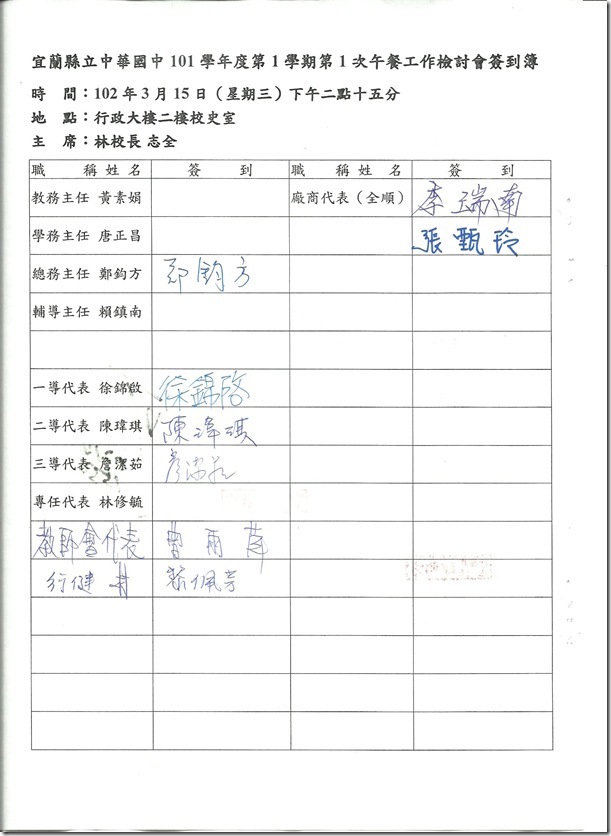 宜蘭縣立中華國中 101 學年度第 1 學期第 1 次午餐工作檢討會簽到簿
時　間：102 年 3 月 15 日（星期三）下午二點十五分
地　點：行政大樓二樓校史室
主　席：林校長 志全
職　稱 姓 名　簽　到　職　稱 姓 名　簽　到
教務主任 黃素娟　廠商代表（全順）　李瑞南
學務主任 唐正昌　張甄玲
總務主任 鄭鈞方　鄭鈞方
輔導主任 賴鎮南
一導代表 徐錦啟　徐錦啓
二導代表 陳瑋琪　陳瑋琪
三導代表 詹潔茹
專任代表 林修毓
教師會代表
行健　佩芳